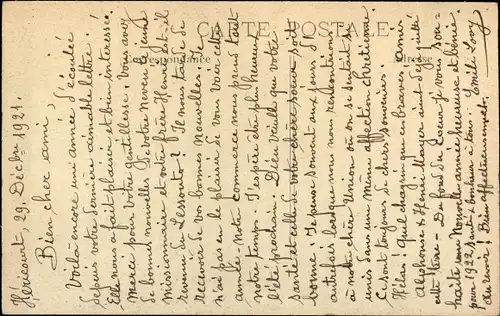 CARTE POSTALE
Correspondance
Adresse
Héricourt, 29. Décbre 1921.
Bien cher ami,
Voilà encore une année d'écoulée
depuis votre dernière aimable lettre!
Elle nous a fait plaisir et bien intéressé.
Merci pour votre gentillesse. Vous avez
de bonnes nouvelles de votre neveu le jeune
missionnaire et votre frère Henri est-il
revenu du Lessouto? Il nous tarde de
recevoir de vos bonnes nouvelles. Je
n'ai pas eu le plaisir de vous voir cette
année. notre commerce nous prend tout
notre temps. J'espère être plus heureux
l'été prochain. Dieu veille que votre
santé et celle de votre chère sœur soit
bonne! Je pense souvent aux jours d'
autrefois lorsque nous nous rencontrions
à notre chère Union où on se sentait si
unis dans une même affection chrétienne
Ce sont toujours de chers souvenirs.
Hélas! Quel chagrin que ces braves amis
Alphonse & Henri aient déjà quitté
cette terre — Du fond du cœur je vous sou=
haite une Nouvelle année heureuse et bénie.
pour 1922 santé & bonheur à tous. Emile Lovy
au revoir! Bien affectueusement.